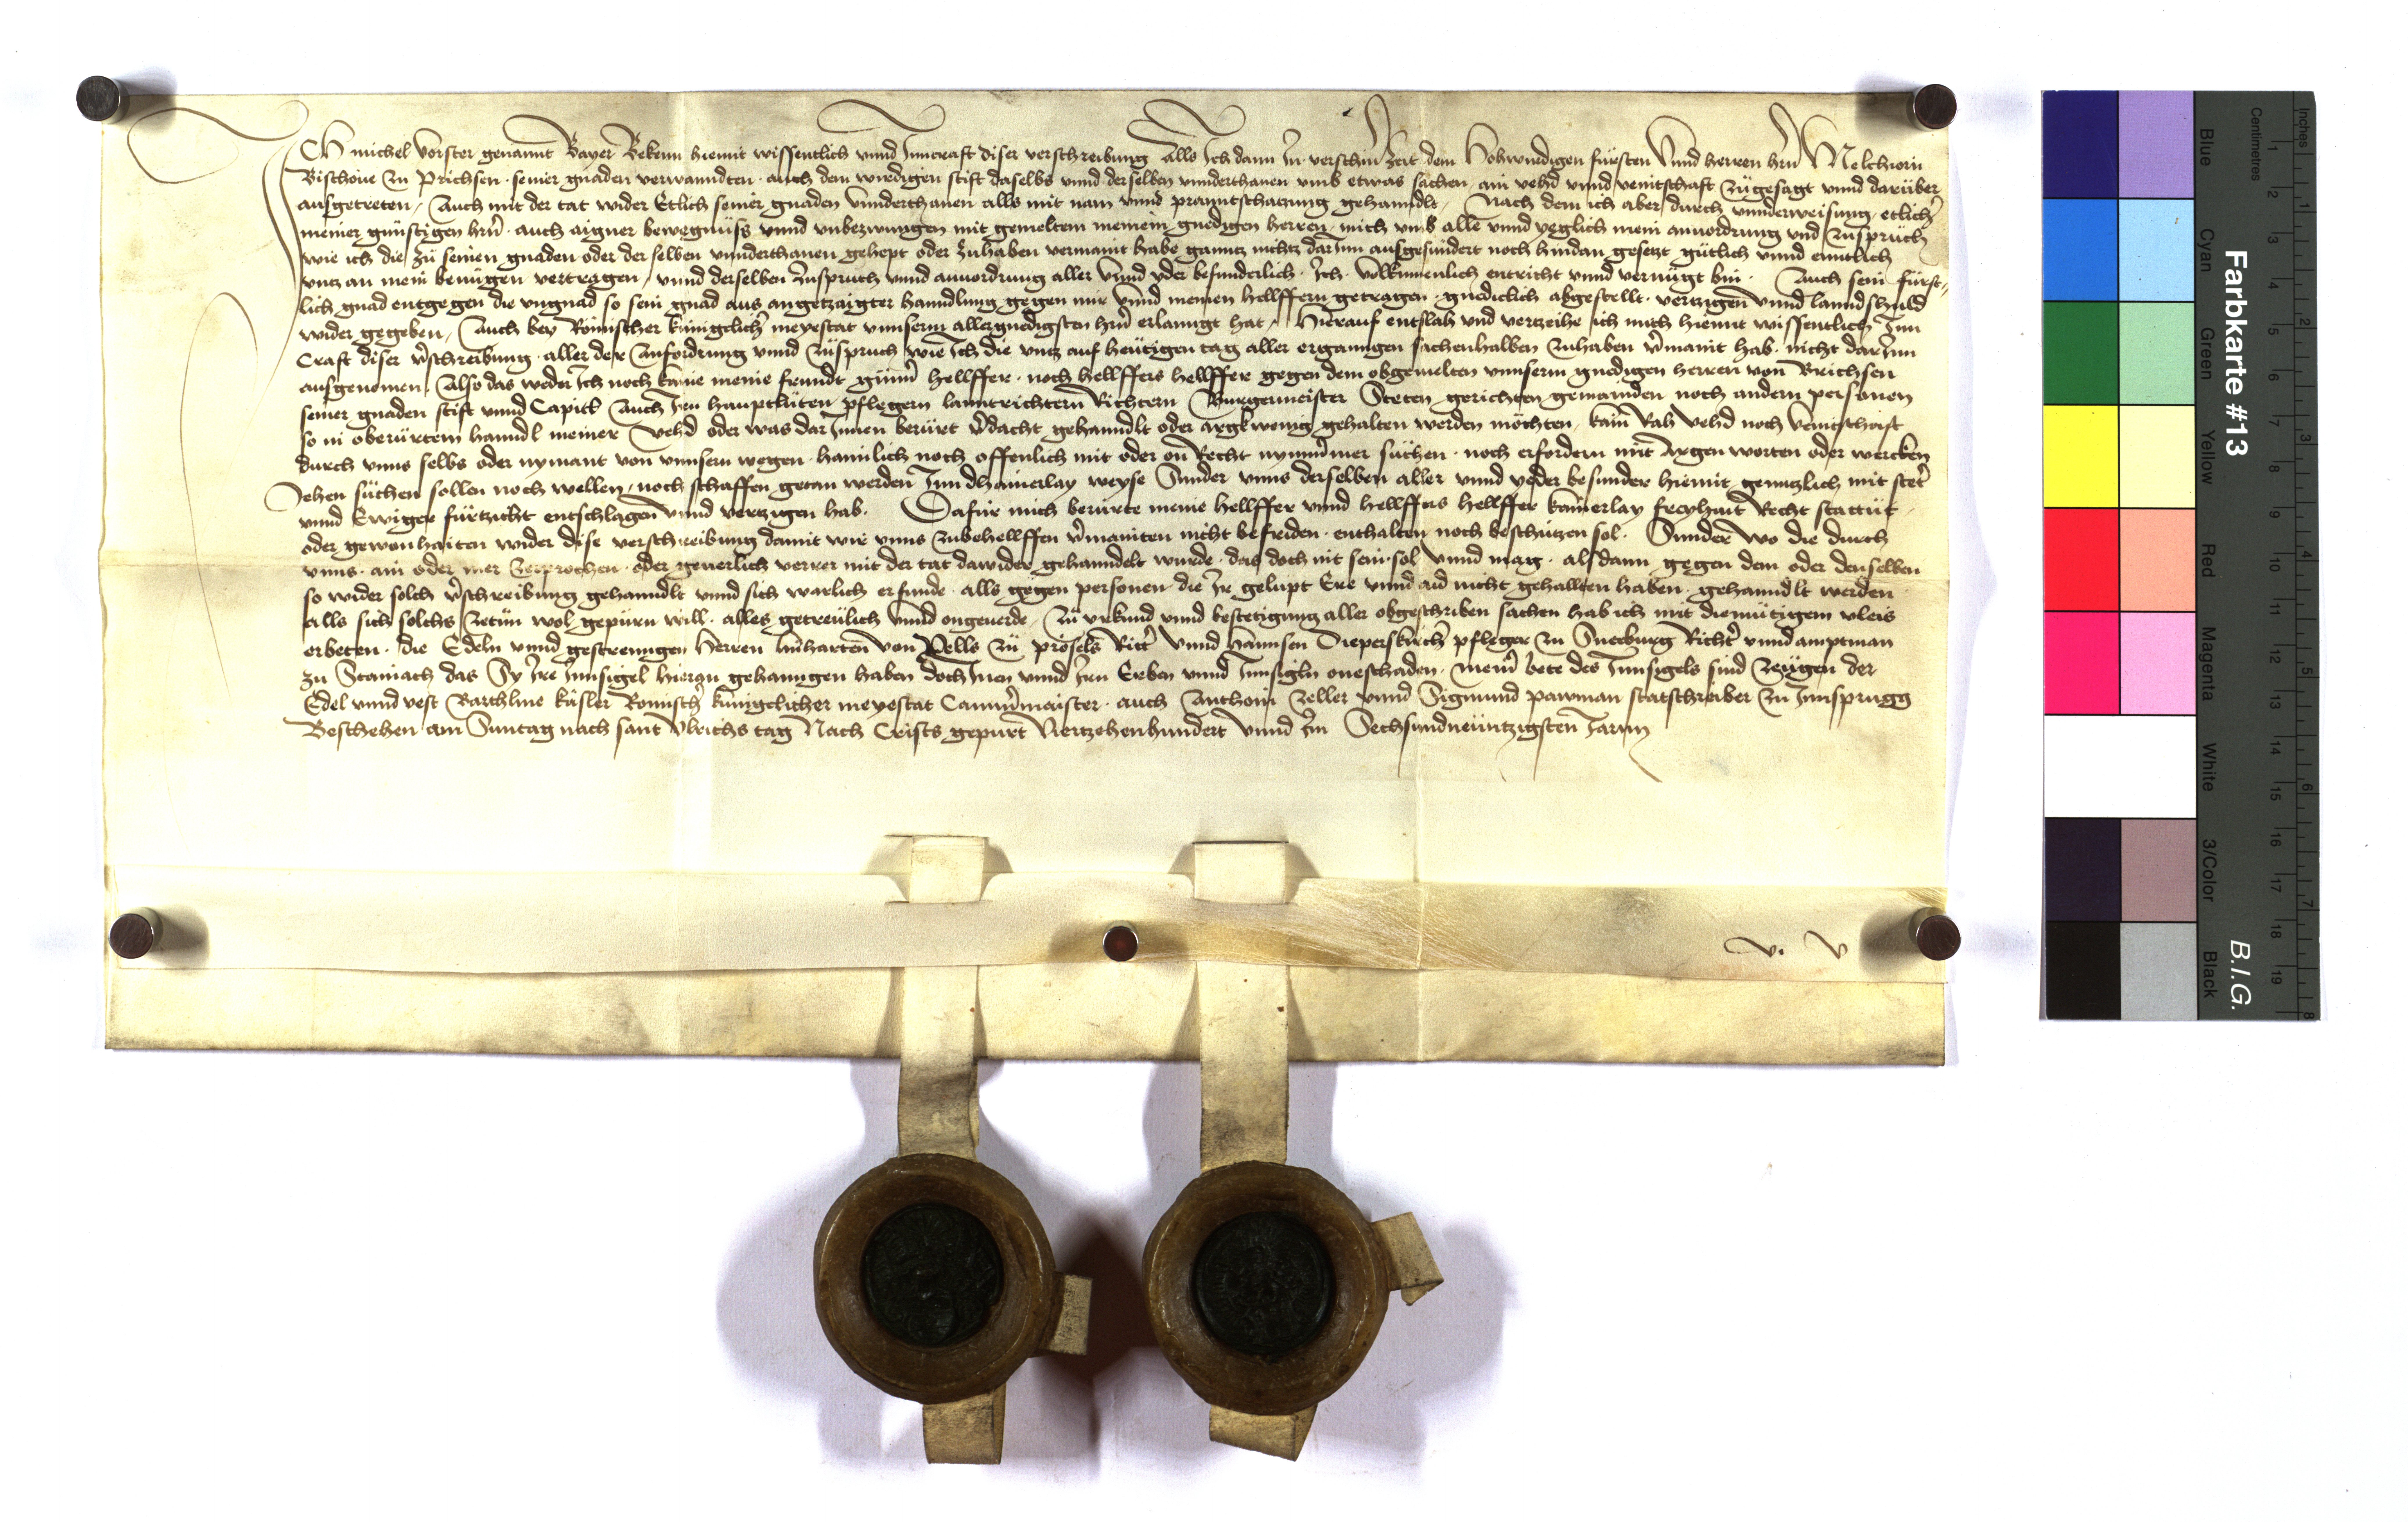 ICH michel vorster genannt Bayer Bekenn hiemit wissentlich vnnd Inncraft diser verschreibung Alls Ich dann In verschin Zeit dem Hohwirdigen fürsten Vnnd herren hrn Melchiorn
Bischoue zu Prichsen seiner gnaden verwanndten auch dem wirdigen stift daselbs vnnd derselben vnnderthanen vmb etwas sachen ain vehd vnnd veintschaft zügesagt vnnd darüber
ausgetreten / Auch mit der tat wider Etlich seiner gnaden vnnderthanen alls mit nam vnnd pranntschatzung gehanndlt / Nach dem ich aber durch vnnderweisung etlicher
meiner günstigen hrn auch aigner bewegnüss vnnd vnbezwungen mit gemeltem meinem gnedigen herren mich vmb alle vnnd yeglich mein anuordrung vnd Züsprüch
wie ich die zü seinen gnaden oder derselben vnnderthanen gehept oder zuhaben vermaint habe ganntz nichtz darInn ausgesundert noch hindan gesetzt gütlich vnnd enntlich
vntz an mein benügen vertragen / vnnd derselben Züspruch vnnd anuordrung aller vnnd yder besunderlich Ich volkumenlich entricht vnnd vernügt bin Auch sein fürst-
lich gnad entgegen die vngnad so sein gnad aus angetzaigter hanndlung gegen mir vnnd meinen hellffern getragen gnediclich abgestellt vertzigen vnnd lanndshuld
wider gegeben / Auch bey Römischer künigclicher meyestat vnnserm allergnedigsten hrn erlanngt hat / Hierauf entslah vnd vertzeihe ich mich hiemit wissentlich Inn
Craft diser verschreibung aller der Anfordrung vnnd Züspruch wie Ich die vntz auf heütigen tag aller erganngen sachenhalben Zuhaben vermaint hab nicht darInn
ausgenomen Also das weder Ich noch kaine meine freundt günner hellffer noch hellffers hellffer gegen dem obgemelten vnnserm gnedigen herren von Brichsen
seiner gnaden stift vnnd Capitl Auch Iren hauptlüten pflegern lanntrichtern Richtern Burgermeister Steten gerichten gemainden noch andern personen
so in oberürtem hanndl meiner vehd oder was darInnen berürt verdacht gehanndlt oder argkwenig gehalten werden möchten kain Rah vehd noch veintschaft
durch vnns selbs oder nymant von vnnsern wegen haimlich noch offenlich mit oder on Recht nymmer süchen noch erfordern mit Argen worten oder wercken
Jehen süchen sollen noch wellen noch schaffen getan werden Inn dhainerlay weyse Sunder vnns derselben aller vnnd yeder besunder hiemit genntzlich mit steter
vnnd Ewiger fürtzicht entschlagen vnnd vertzigen hab Dafür mich berürte meine hellffer vnnd hellffers hellffer kainerlay freyhait Recht stattüt
oder gewonhaiten wider dise verschreibung damit wir vnns zubehellffen vermainten nicht befriden enthalten noch beschützen sol Sunder wo die durch
vnns ain oder mer zerprochen oder geuerlich verrer mit der tat dawider gehanndelt wurde das doch nit sein sol vnnd mag alsdann gegen dem oder denselben
so wider solch verschreibung gehanndlt vnnd sich warlich erfunde alls gegen personen die Ir gelupt Ere vnnd aid nicht gehallten haben gehanndlt werden
alls sich solchs zetün wol gepürn will alles getreülich vnnd ongeuerde Zü vrkund vnnd bestetigung aller obgeschriben sachen hab ich mit diemütigem vleis
erbeten die Edeln vnnd gestrenngen herren linharten von Vells zü prösels Ritter vnnd hannsen Dieperskircher pfleger zu Snecburg Richter vnnd amptman
zu Stainach das Sy Ire Innsigel hieran gehanngen haben doch Inen vnnd Iren Erben vnnd Innsigln oneschaden meiner bete des Innsigels sind zeügen der
Edel vnnd vest Barthlme käsler Römischer künigclicher meyestat Cammermaister auch Anthoni zeller vnnd Sigmund pawman statschreiber zu Innsprugg
Beschehen am Suntag nach sant vlrichs tag Nach Crists gepurt Viertzehenhundert vnnd Im Sechsundneüntzigsten Jarnn
v. v
Farbkarte #13
B.I.G.
Inches
Centimetres
Blue Cyan Green Yellow Red Magenta White 3/Color Black
1 2 3 4 5 6 7 8 9 10 11 12 13 14 15 16 17 18 19
1 2 3 4 5 6 7 8